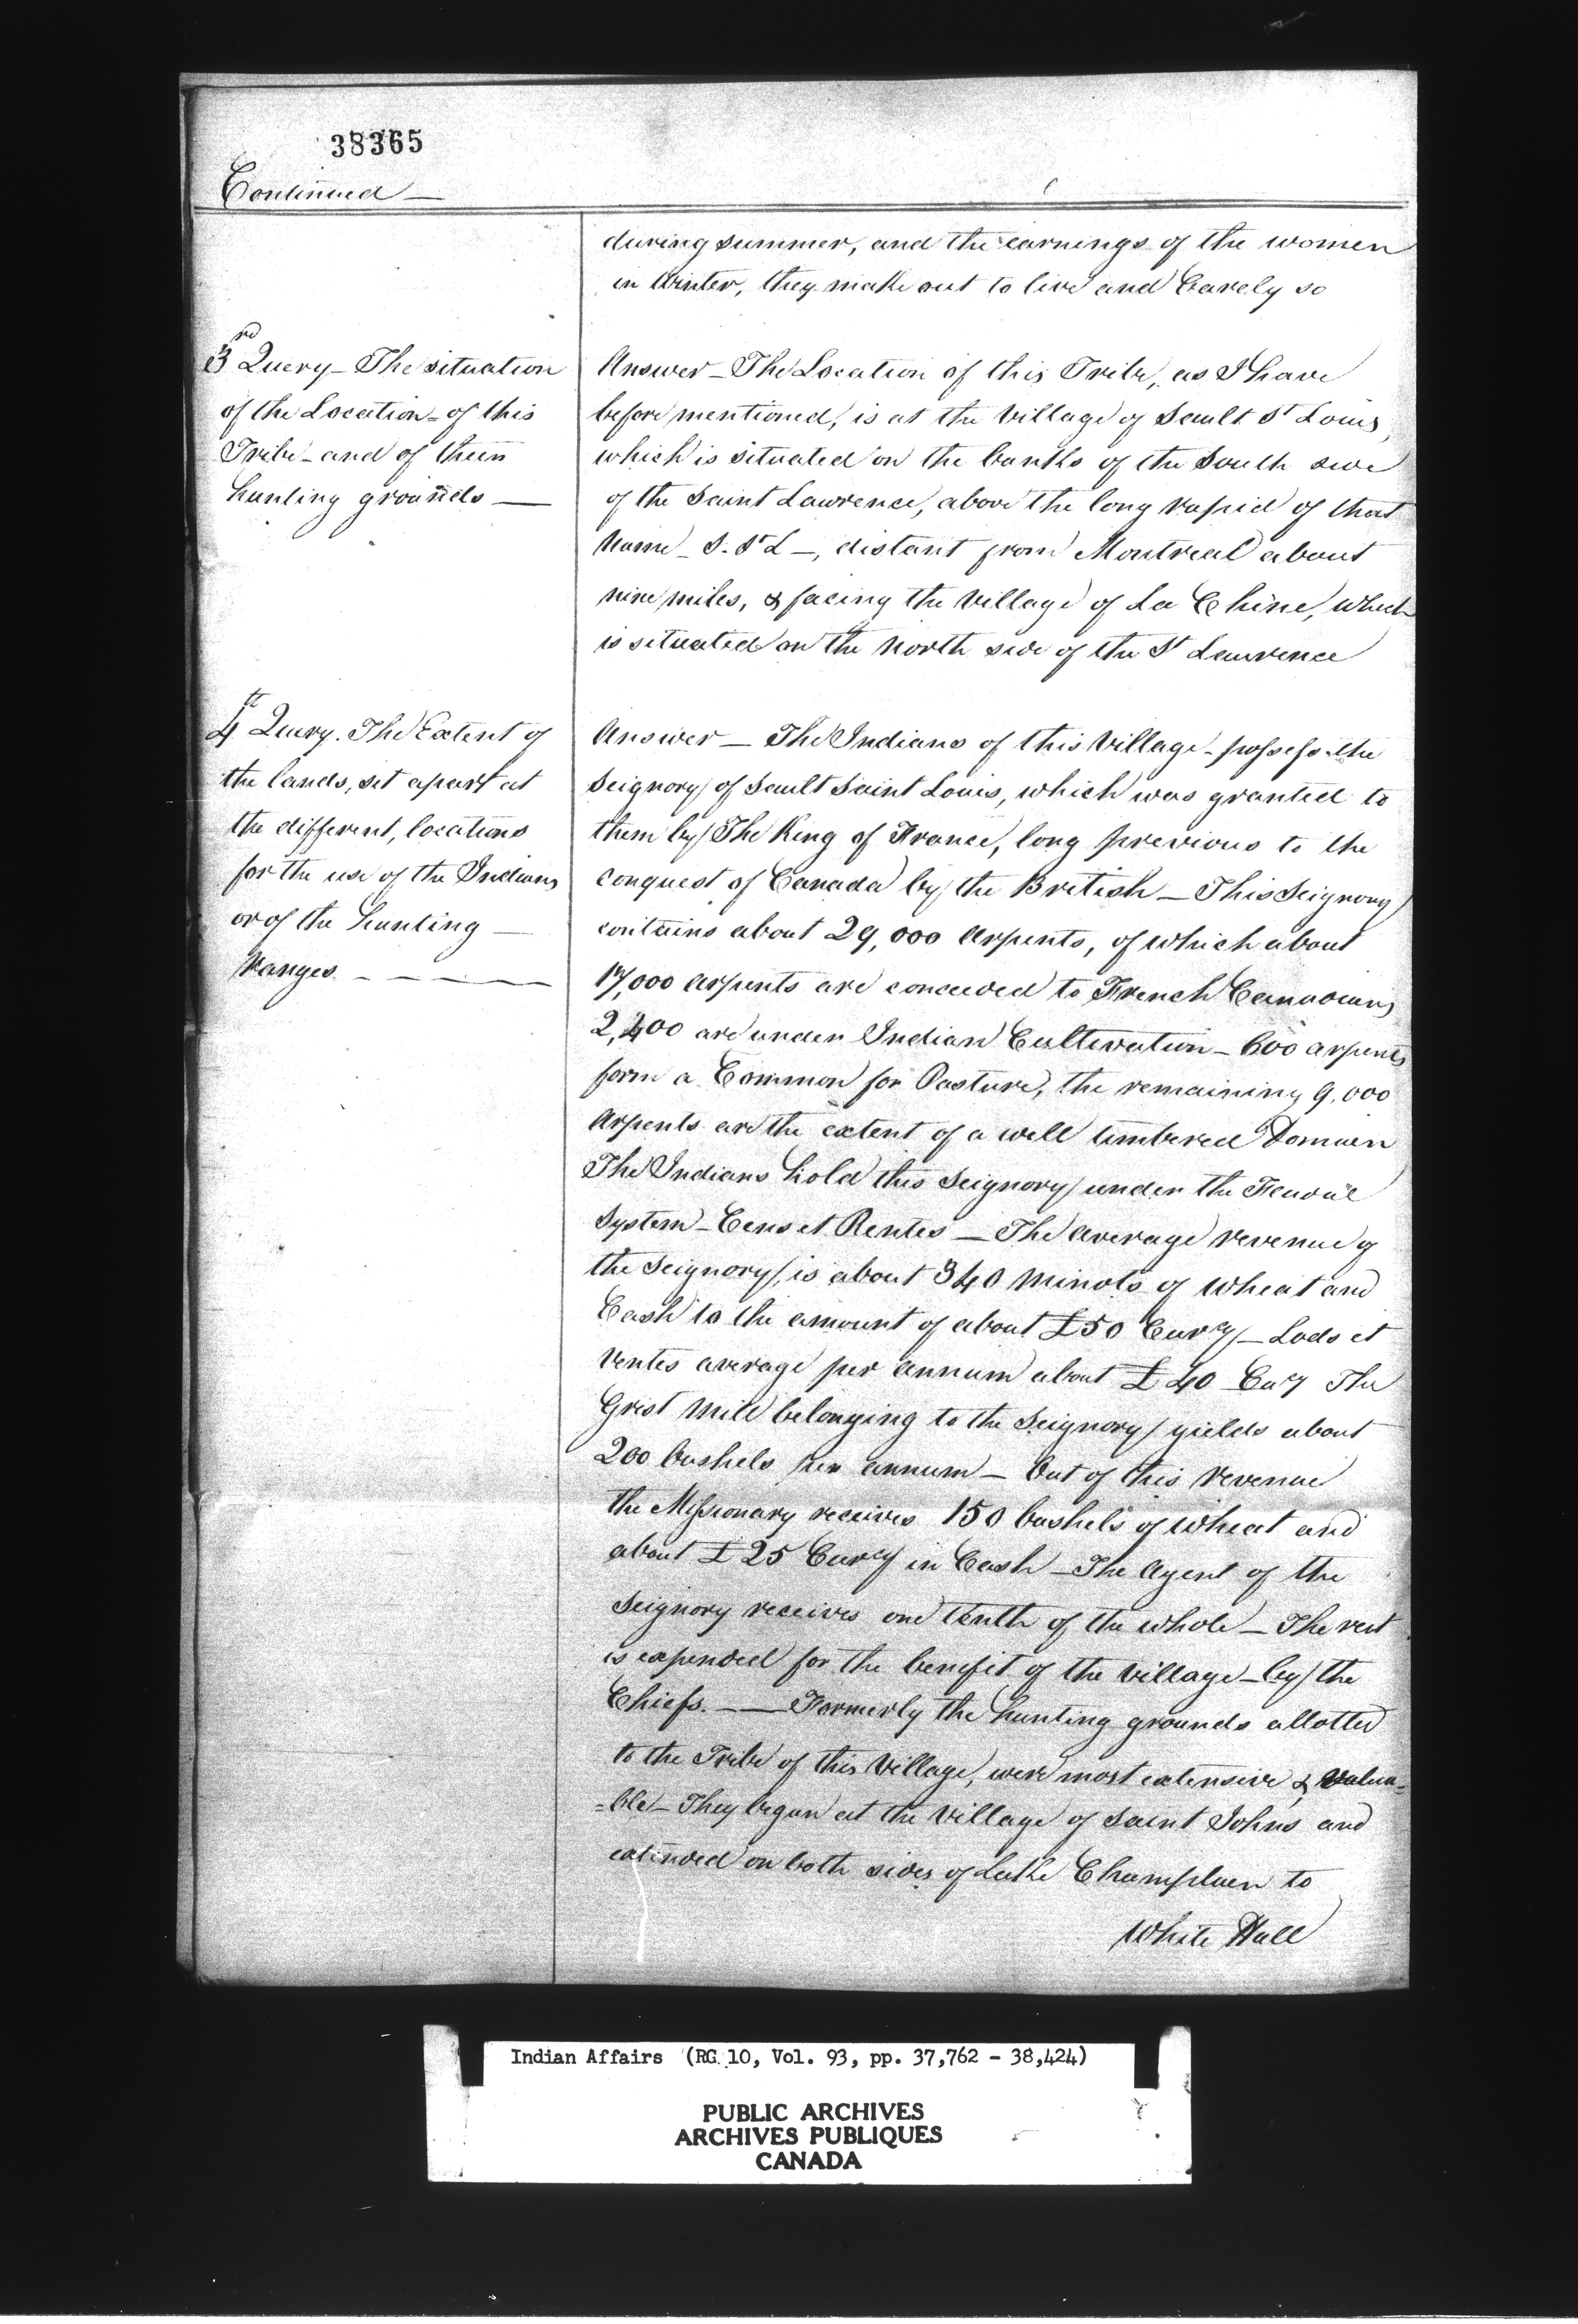 38365
Continued —
during summer, and the earnings of the women
in Winter, they make out to live and barely so
3rd Query – The situation
of the Location – of this
Tribe – and of their
hunting grounds —
Answer – The Location of this Tribe, as I have
before mentioned, is at the Village of Sault St Louis,
which is situated on the banks of the South side
of the Saint Lawrence, above the long rapid of that
Name – S. St L –, distant from Montreal about
nine miles, & facing the Village of La Chine, which
is situated on the North side of the St Lawrence
4th Query. The Extent of
the lands, set apart at
the different, locations
for the use of the Indians
or of the hunting —
Ranges – – – —
Answer — The Indians of this Village – possess the
Seignory of Sault Saint Louis, which was granted to
them by The King of France, long previous to the
conquest of Canada by the British — This Seignory
contains about 29,000 Arpents, of which about
17,000 arpents are conceeded to French Canadians
2,400 are under Indian Cultivation – 600 arpents
form a Common for Pasture, the remaining 9,000
Arpents are the extent of a well timbered Domain
The Indians hold this Seignory under the Feudal
System – Cens et Rentes — The average revenue of
the Seignory, is about 340 Minots of Wheat and
Cash to the amount of about £50 Curcy — Lods et
Ventes average per annum about £40 Cucy The
Grist Mill belonging to the Seignory yields about
200 bushels per annum — Out of this Revenue
the Missionary receives 150 bushels of Wheat and
about £25 Curcy in Cash — The Agent of the
Seignory receives one tenth of the whole — The rest
is expended for the benefit of the Village – by the
Chiefs. —— Formerly the hunting grounds allotted
to the Tribe of this Village, were most extensive & valua=
=ble – They began at the Village of Saint Johns and
extended on both sides of Lake Champlain to
White Hall
Indian Affairs (RG 10, Vol. 93, pp. 37,762 - 38,424)
PUBLIC ARCHIVES
ARCHIVES PUBLIQUES
CANADA